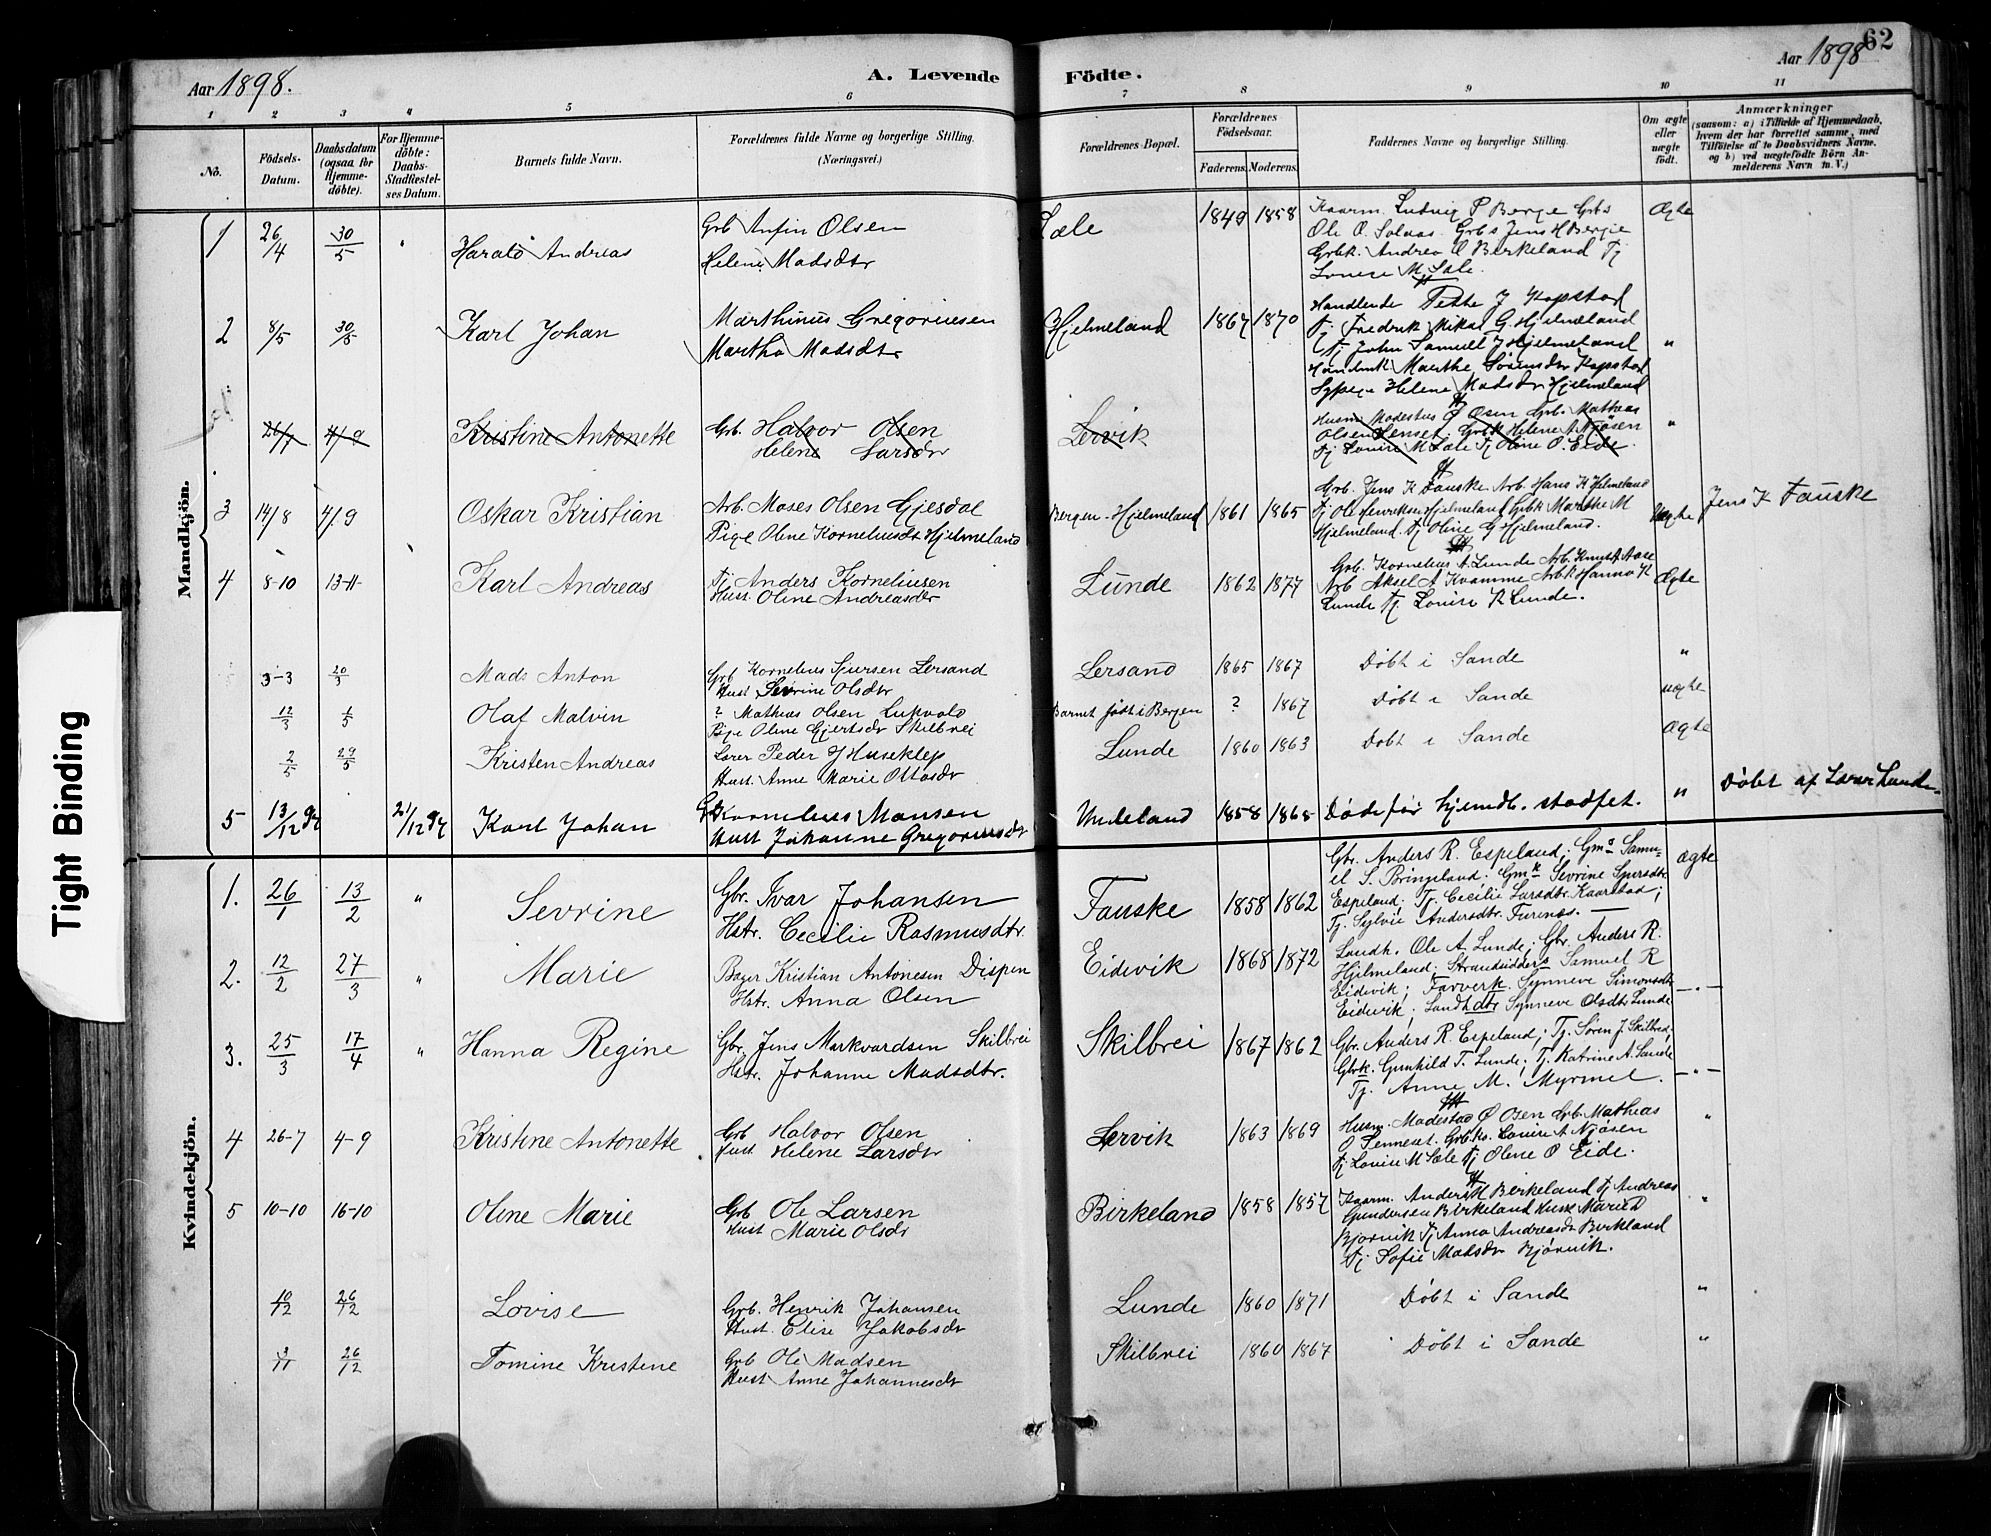 Aar 1898.
A. Levende
Födte.
Aar 1898
62
1 2 3 4 5 6 7 8 9 10 11
No.
Födsels-Datum.
Daabsdatum (ogsaa for Hjemme-döbte).
For Hjemme-döbte: Daabs-Stadfæstel-ses Datum.
Barnets fulde Navn.
Forældrenes fulde Navne og borgerlige Stilling. (Næringsvei.)
Forældrenes Bopæl.
Forældrenes Födselsaar.
Faderens.
Moderens.
Faddernes Navne og borgerlige Stilling.
Om ægte eller uægte födt.
Anmærkninger
(saasom: a) i Tilfælde af Hjemmedaab, hvem der har forrettet samme, med Tilföielse af to Daabsvidners Navne. og b) ved uægtefödte Börn An-melderens Navn m. V.)
Mandkjön.
1 26/4 30/5 " Harald Andreas
Grb Anfin Olsen
Helene Madsdtr
Sæle 1849 1858
Kaarm. Ludvig P Berge Grbs
Ole O. Solaas. Grbs Jens H Berge
Grbk. Andrea O Birkeland Tj
Lovise M. Sæle.
Ægte
2 8/5 30/5 Karl Johan
Marthinus Gregoriusen
Martha Madsdtr
Hjelmeland 1867 1870
Handlende Peter J Kopstad
Tj. Fredrik Mikal G. Hjelmeland
Tj John Samuel J Hjelmeland
Marthe Sörensdtr Kopstad
Sypige Helene Madsdtr Hjelmeland
"
26/7 4/9 Kristine Antonette
Grb. Halvor Olsen
Helene Larsdtr
Lervik
Husm Modestus Ø Osen Grb. Mathias
Olsen Grbk Helene A Njøsen
Tj Lovise M Sæle Tj Oline O. Eide.
"
3 14/8 4/9 Oskar Kristian
Arb. Moses Olsen Gjesdal
Pige Oline Korneliusdt Hjelmeland
Bergen - Hjelmeland 1861 1865
Grb. Jens K Fauske Arb. Hans K Hjelmeland
Tj Ole Henriksen Hjelmeland Grbk Marthe M
Hjelmeland. Tj Oline G Hjelmeland.
Uægte
Jens K Fauske
4 8-10 13-11 Karl Andreas
Tj Anders Korneliusen
Hust. Oline Andreasdtr
Lunde 1862 1877
Grb. Kornelius A. Lunde Arb. Knut A Aase
Arb Aksel A Kvamme Arbk Hanna K
Lunde Tj. Lovise R Lunde.
Ægte
3-3 20/3 Mads Anton
Grb Kornelius Sjursen Lersand
Hust Sevrine Olsdtr
Lersand 1865 1867 Döbt i Sande "
12/3 1/5 Olaf Malvin
? Mathias Olsen Lukvold
Pige Oline Gjertsdtr Skilbrei
Barnet födt i Bergen ? 1867 Döbt i Sande uægte
2/5 29/5 Kristen Andreas
Lærer Peder J Huseklep
Hust. Anne Marie Ottosdtr
Lunde 1860 1863 Döbt i Sande Ægte
5 13/12 97 21/12 97 Karl Johan
Grb Kornelius Monsen
Hust Johanne Gregoriusdt
Undeland 1858 1865 Döde för hjemdb. stadfæt. "
Döbt af Lærer Lunde
Kvindekjön.
1. 26/1 13/2 " Sevrine
Gbr. Ivar Johansen
Hstr. Cecilie Rasmusdtr.
Fauske 1858 1862
Gbr. Anders R. Espeland; Gm. Samu-
el S. Bringeland; Gmk Sevrine Sjursdtr
Espeland; Tj. Cecilie Larsdtr. Kaarstad;
Tj. Sylvie Andersdtr. Furenes. —
ægte
2. 12/2 27/3 " Marie
Bager Kristian Antonesen Dispen
Hstr. Anna Olsen
Eidevik 1868 1872
Landh. Ole A. Lunde; Gbr. Anders R.
Hjelmeland; Strandsidders Samuel R
Eidevik; Farverk. Synneve Simonsdtr
Eidevik; Landhdtr Synneve Olsdtr Lunde
— " —
3. 25/3 17/4 " Hanna Regine
Gbr. Jens Markvardsen Skilbrei
Hstr. Johanne Madsdtr.
Skilbrei 1867 1862
Gbr. Anders R. Espeland; Tj. Søren J. Skilbrei;
Gbrk. Gunhild T. Lunde; Tj. Katrine A. Sande
Tj. Anne M. Myrmel.
— " —
4 26-7 4-9 Kristine Antonette
Grb Halvor Olsen
Hust Helene Larsdtr
Lervik 1863 1869
Husm. Madestad Ø Osen Grb. Mathias
O Grbks. Lovise A Njøsen
Tj Lovise M Sæle Tj Oline O Eide.
"
5 10-10 16-10 Oline Marie
Grb Ole Larsen
Hust Marie Olsdtr
Birkeland 1858 1857
Kaarm. Anders Birkeland Tj Andreas
Gundersen Birkeland Husk Marie D
Bjørvik Tj Anna Andreasdt Birkland
Tj Sofie Madsdtr Bjørvik.
"
10/12 26/12 Lovise
Grb. Henrik Johansen
Hust. Elise Jakobsdtr
Lunde 1860 1871 Döbt i Sande "
3/11 26/12 Tomine Kristine
Grb Ole Madsen
Hust Anne Johannesdtr
Skilbrei 1860 1867 Döbt i Sande "
Tight Binding